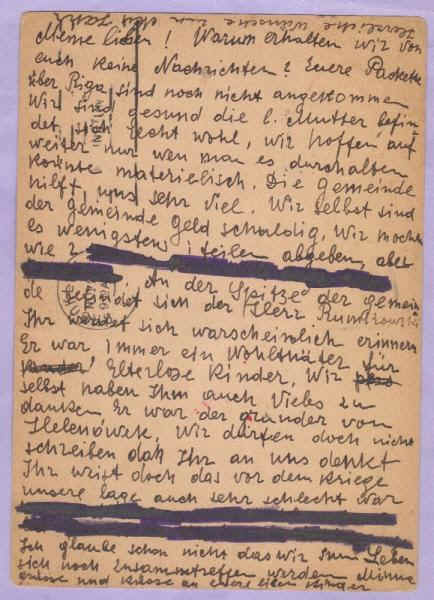 Herzliche Wünsche zu
Meine lieben! Warum erhalten wir von
euch keine Nachrichten? Euere Packette
über Riga, sind noch nicht angekommen
Wir sind gesund die l. Mutter befin
det sich recht wohl, wir hoffen auf
weiter nur wen man es durchalten
konnte materielisch. Die gemeinde
hilft, uns sehr viel. Wir selbst sind
der gemeinde Geld schuldig, Wir mochten
es wenigstens teilen abgeben, aber
wie
An der Spitze der gemein
de befindet sich der Herr Rumkowski
Ihr werdet sich warscheinlich erinnern
Er war immer ein Wohlthäter für
Elterlose Kinder, Wir
selbst haben Ihm auch Vieles zu
danken Er war der grunder von
Helenówek, Wir dürfen doch nicht
schreiben dah Ihr an uns denkt
Ihr weist doch das vor dem Kriege
unsere lage auch sehr schlecht war
Ich glaube schon nicht das wir im Leben
sich noch zusammtreffen werden
grüsse und küsse an euere lieben Kinder